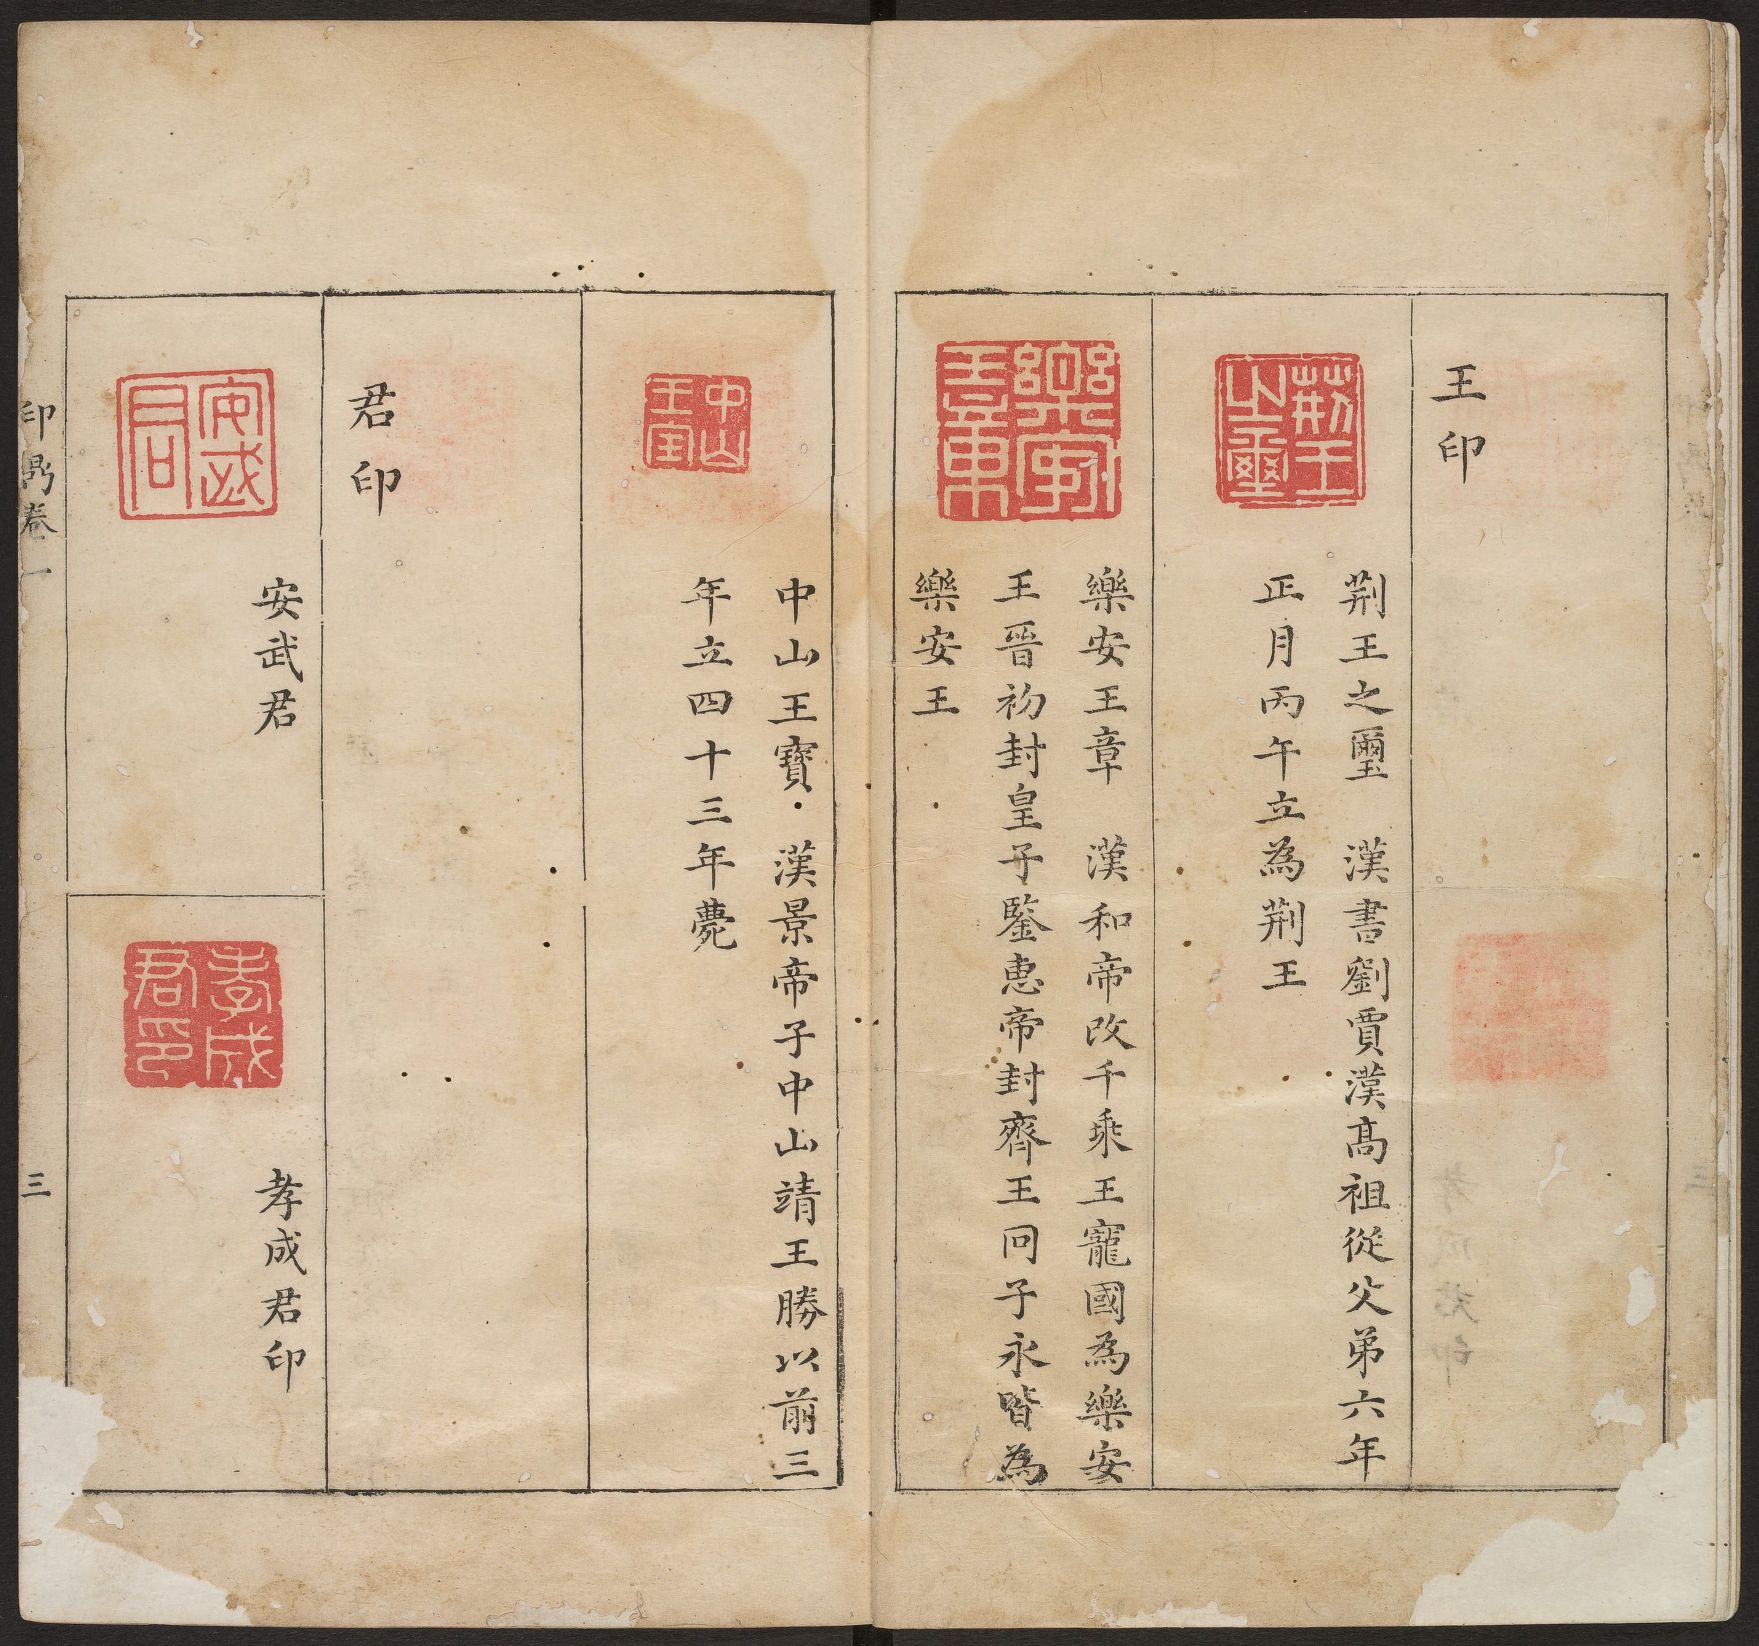 王印
荆王之璽
荆王之璽　漢書劉賈漢高祖從父弟六年
正月丙午立為荆王
樂安王章
樂安王章　漢和帝改千乘王寵國為樂安
王晉初封皇子鑒惠帝封齊王冏子永皆為
樂安王
中山王寶
中山王寶　漢景帝子中山靖王勝以前三
年立四十三年薨
君印
安武君
安武君
孝成君印
孝成君印
卷一
三